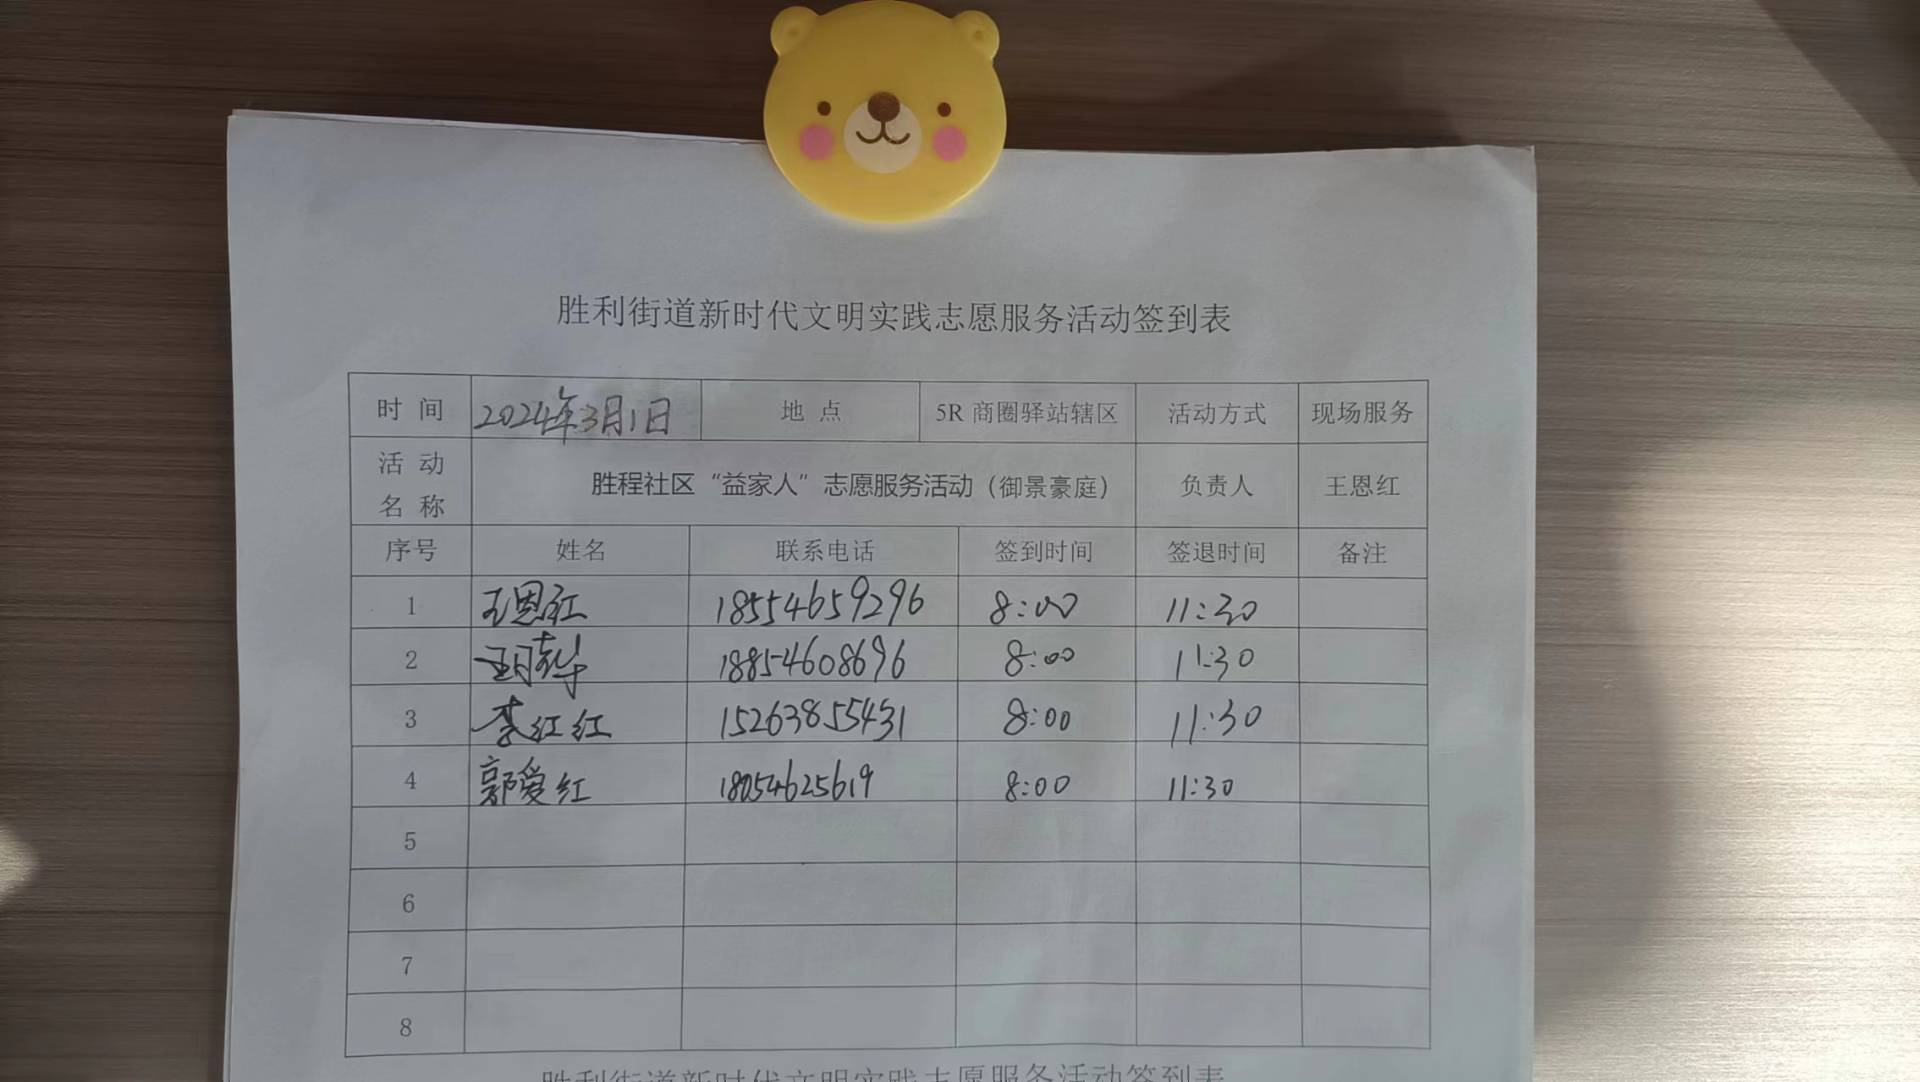 胜利街道新时代文明实践志愿服务活动签到表
时 间 2024年3月1日 地 点 5R 商圈驿站辖区 活动方式 现场服务
活 动
名 称 胜程社区“益家人”志愿服务活动（御景豪庭） 负责人 王恩红
序号 姓名 联系电话 签到时间 签退时间 备注
1 王恩红 18554659296 8:00 11:30
2 18854608696 8:00 11:30
3 李红红 15263855431 8:00 11:30
4 郭爱红 18054625619 8:00 11:30
5
6
7
8
胜利街道新时代文明实践志愿服务活动签到表